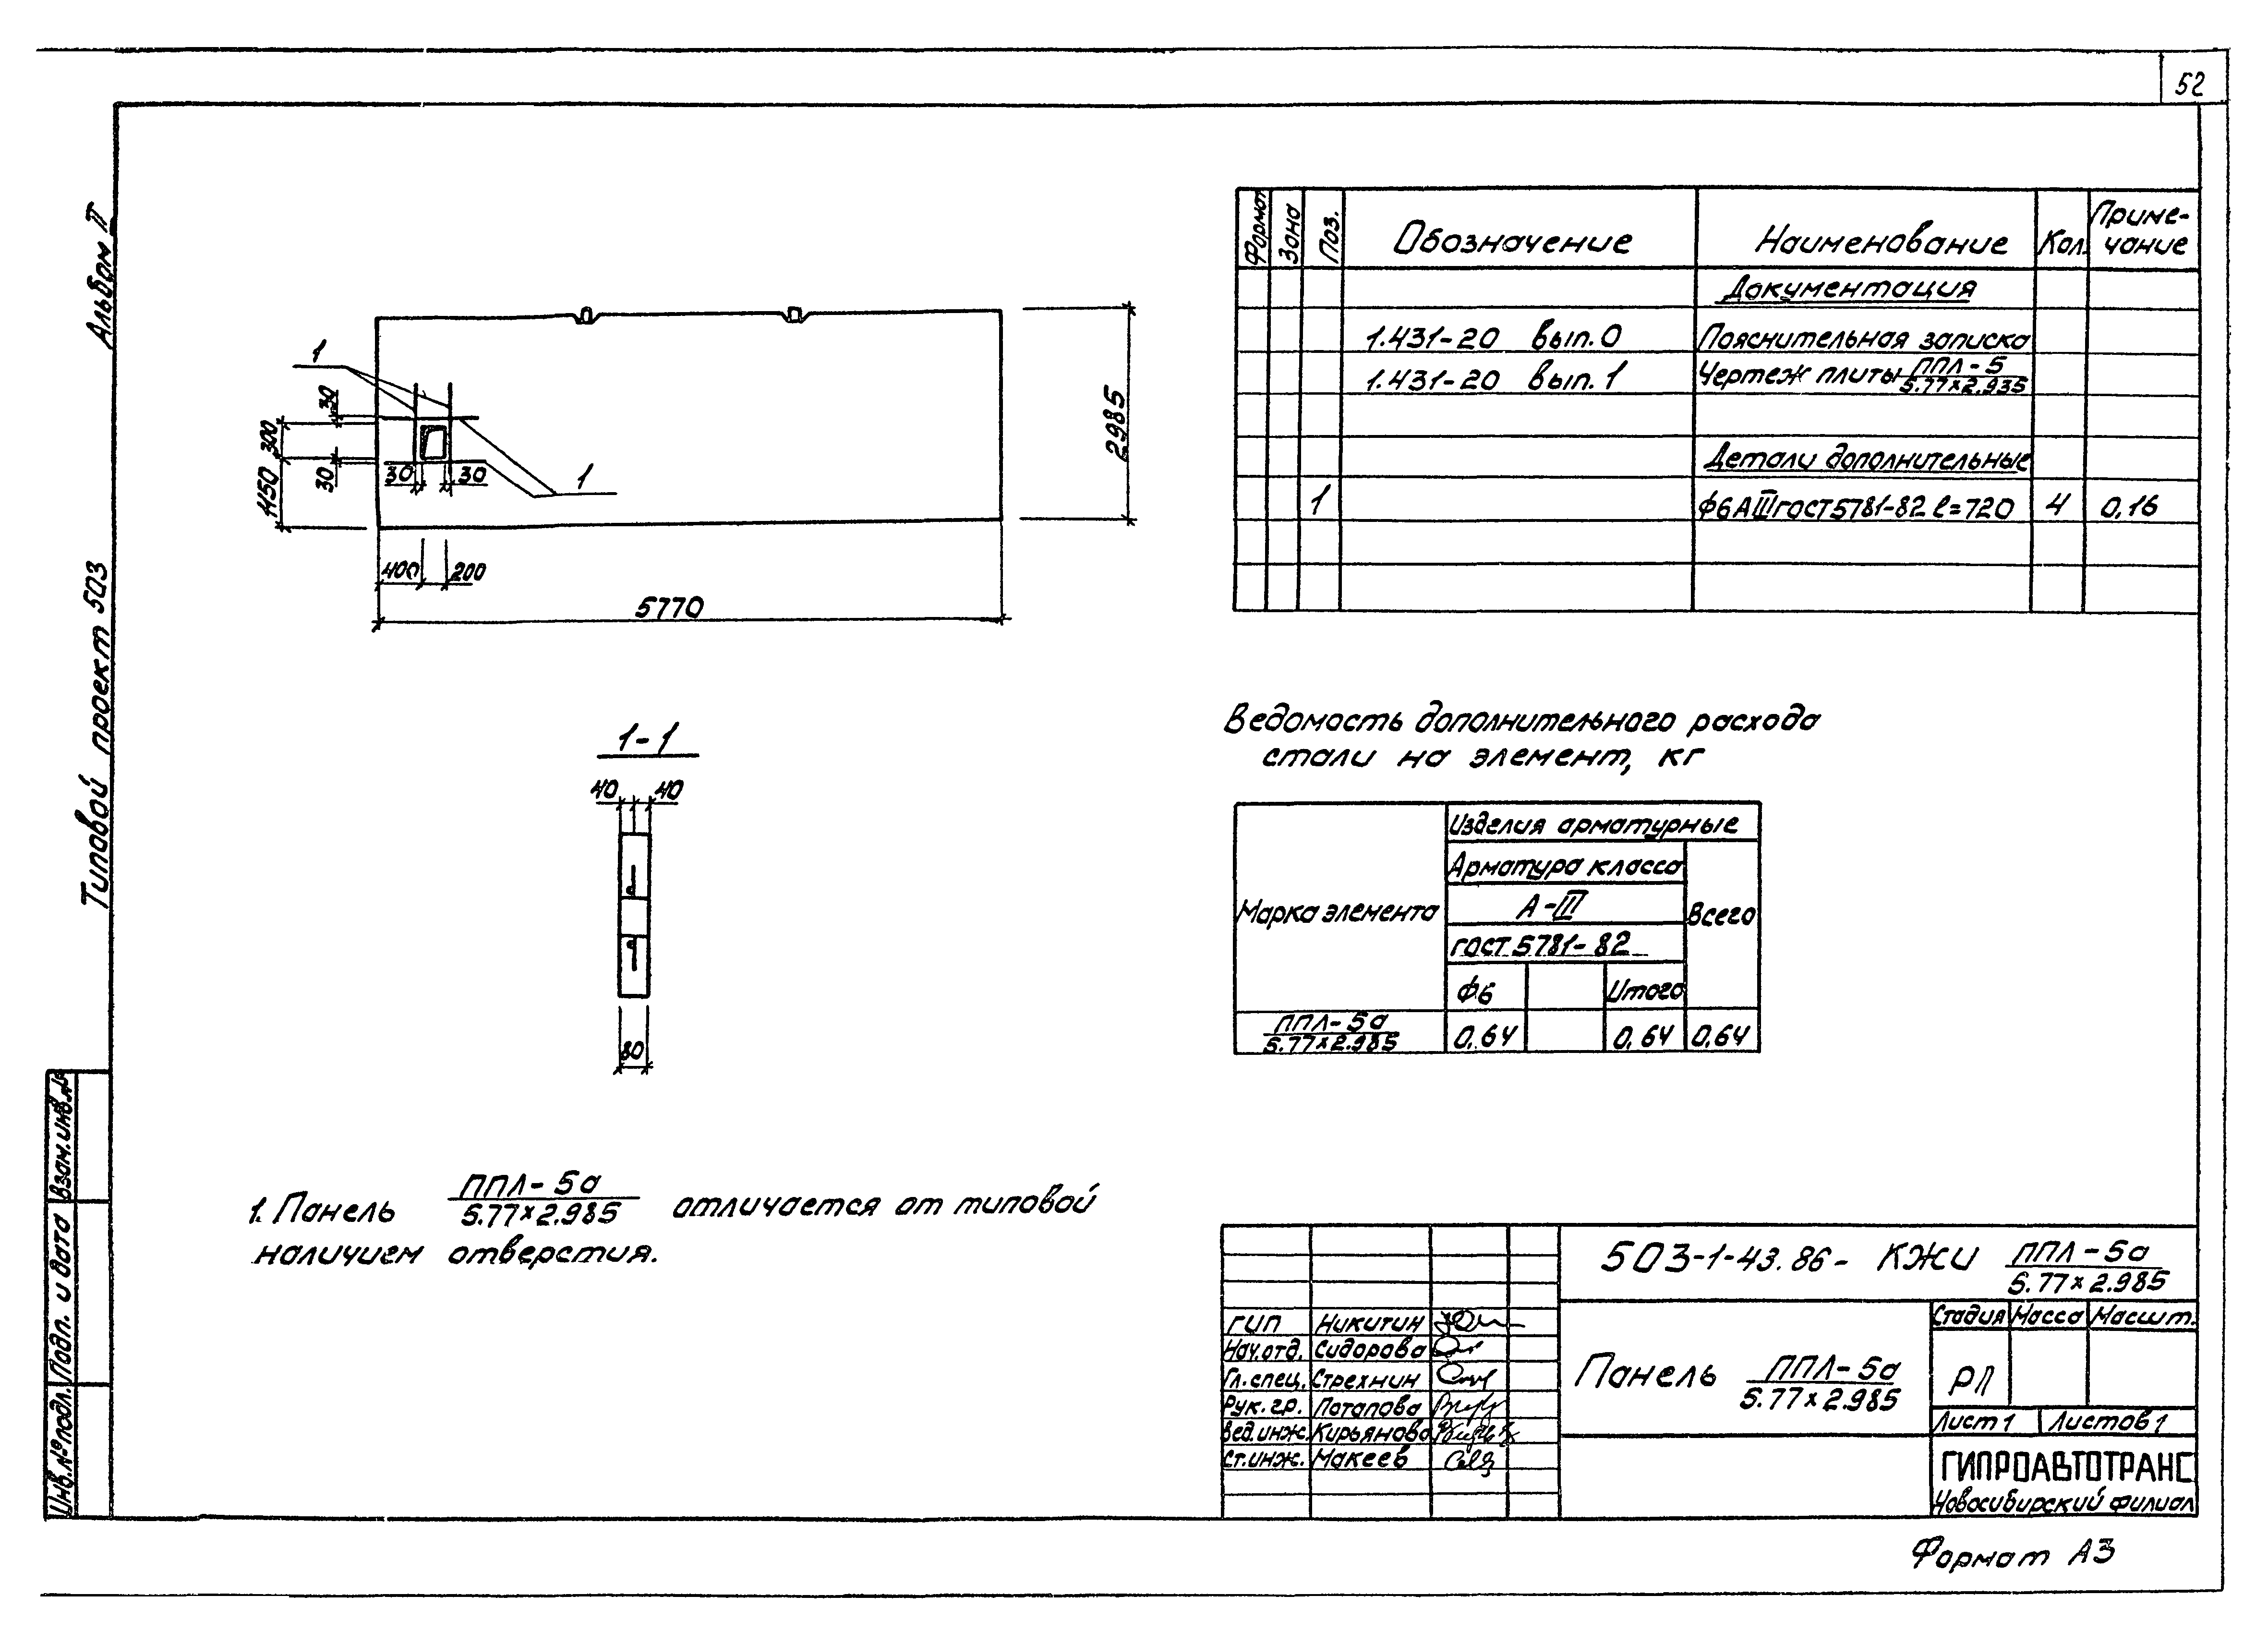 52
Альбом II
Типовой проект 503
Взам.инв.№
Подп. и дата
Инв.№подл.
1
30
300
30
1450
30
30
1
2985
400
200
5770
1-1
40
40
80
1. Панель ППЛ-5а
5.77×2.985 отличается от типовой
наличием отверстия.
Формат
Зона
Поз.
Обозначение
Наименование
Кол.
Приме-
чание
Документация
1.431-20 вып.0 Пояснительная записка
1.431-20 вып.1 Чертеж плиты ППЛ-5
5.77×2.935
Детали дополнительные
1 ф6АIIIгост5781-82 ℓ=720 4 0,16
Ведомость дополнительного расхода
стали на элемент, кг
Марка элемента
Изделия арматурные
Арматура класса
А-III
гост 5781-82
Всего
ф6 Итого
ППЛ-5а
5.77×2.985
0,64 0,64 0,64
503-1-43.86- КЖИ ППЛ-5а
5.77×2.985
ГИП Никитин
Нач.отд. Сидорова
Гл.спец. Стрехнин
Рук.гр. Потапова
Вед.инж. Кирьянова
Ст.инж. Макеев
Панель ППЛ-5а
5.77×2.985
Стадия Масса Масшт.
РП
Лист 1 Листов 1
ГИПРОАВТОТРАНС
Новосибирский филиал
Формат А3